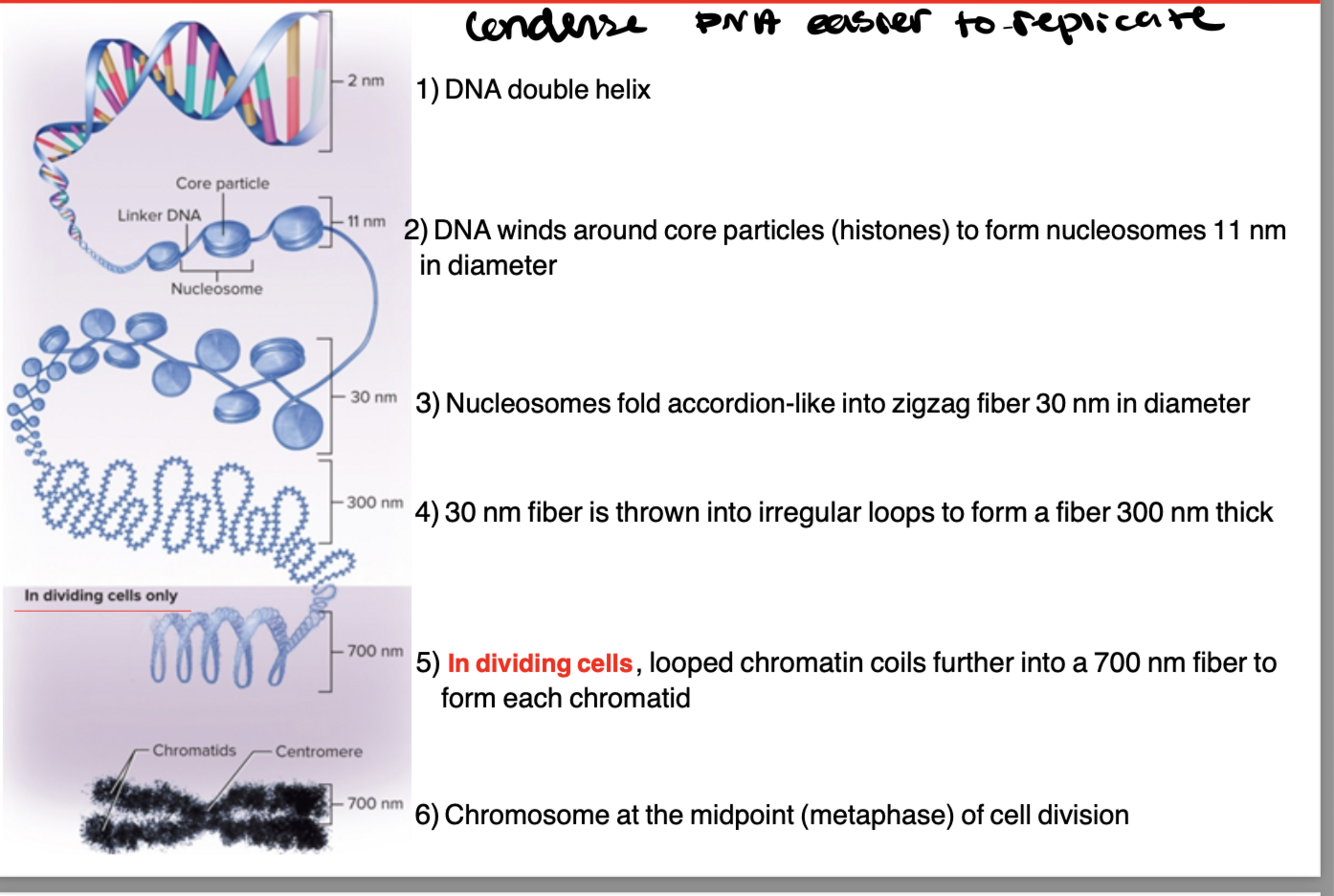 condense DNA easier to replicate
2 nm
1) DNA double helix
Core particle
Linker DNA
11 nm
2) DNA winds around core particles (histones) to form nucleosomes 11 nm
in diameter
Nucleosome
30 nm
3) Nucleosomes fold accordion-like into zigzag fiber 30 nm in diameter
300 nm
4) 30 nm fiber is thrown into irregular loops to form a fiber 300 nm thick
In dividing cells only
700 nm
5) In dividing cells, looped chromatin coils further into a 700 nm fiber to
form each chromatid
Chromatids
Centromere
700 nm
6) Chromosome at the midpoint (metaphase) of cell division